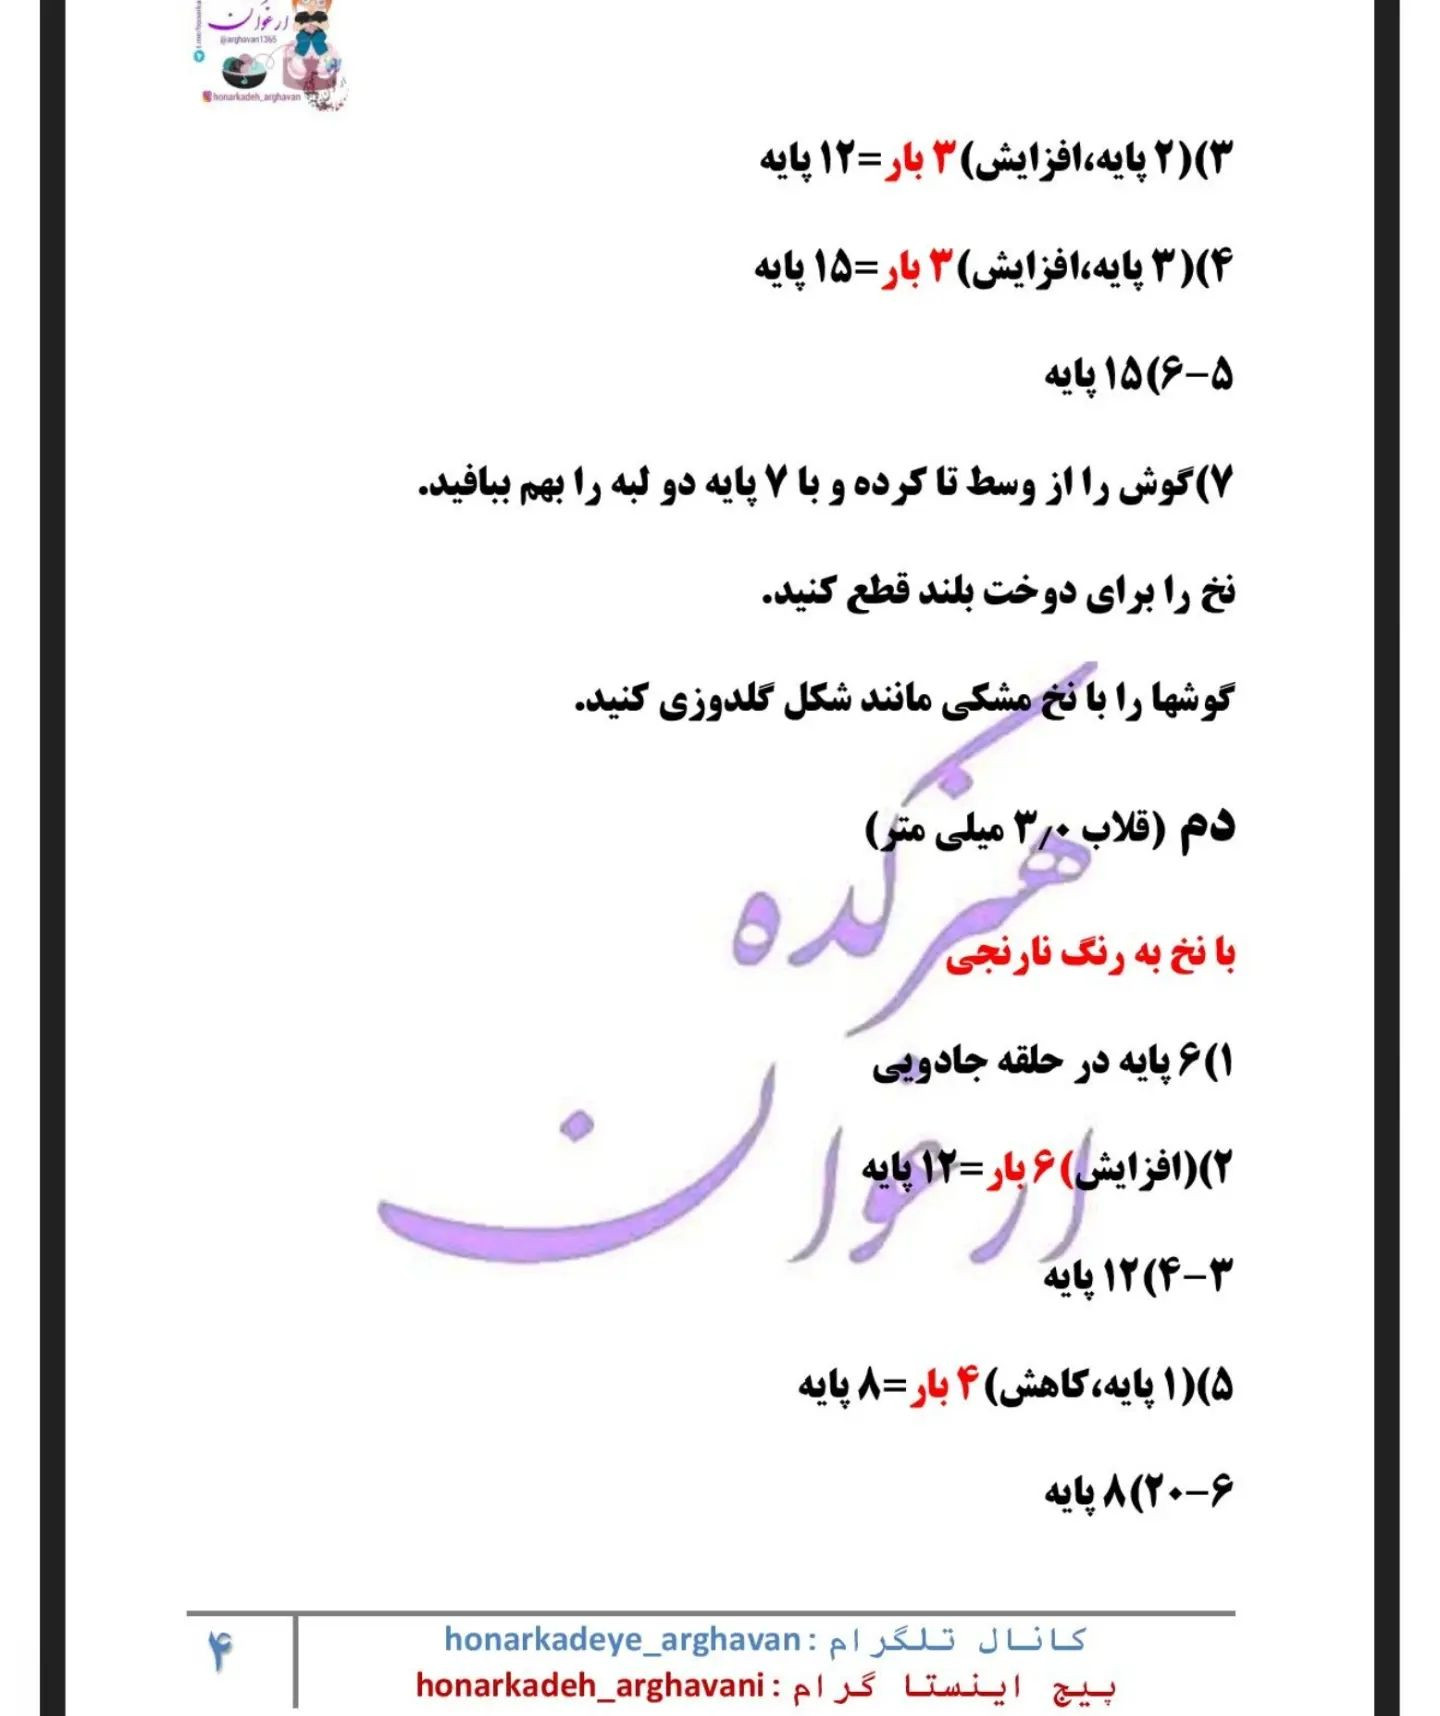 ارغوان
@arghavan1365
honarkadeh_arghavan
۳)(۲ پایه،افزایش)۳ بار=۱۲ پایه
۴)(۳ پایه،افزایش)۳ بار=۱۵ پایه
۵-۶)۱۵ پایه
۷)گوش را از وسط تا کرده و با ۷ پایه دو لبه را بهم ببافید.
نخ را برای دوخت بلند قطع کنید.
گوشها را با نخ مشکی مانند شکل گلدوزی کنید.
دم (قلاب ۳٫۰ میلی متر)
با نخ به رنگ نارنجی
۱)۶ پایه در حلقه جادویی
۲)(افزایش)۶ بار=۱۲ پایه
۳-۴)۱۲ پایه
۵)(۱ پایه،کاهش)۴ بار=۸ پایه
۶-۲۰)۸ پایه
هنرکده
ارغوان
کانال تلگرام : honarkadeye_arghavan
پیج اینستا گرام : honarkadeh_arghavani
۴